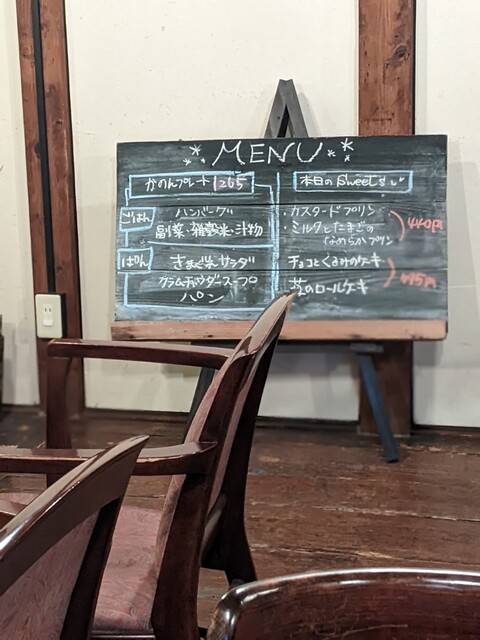 MENU
かのんプレート 1265
ごはん
ハンバーグ
副菜・雑穀米・汁物
ぱん
さまざまサラダ
クラムチャウダースープ
パン
本日のSweets
・カスタードプリン
・ミルクとたまごの
なめらかプリン
440円
チョコとくるみのケーキ
のロールケーキ